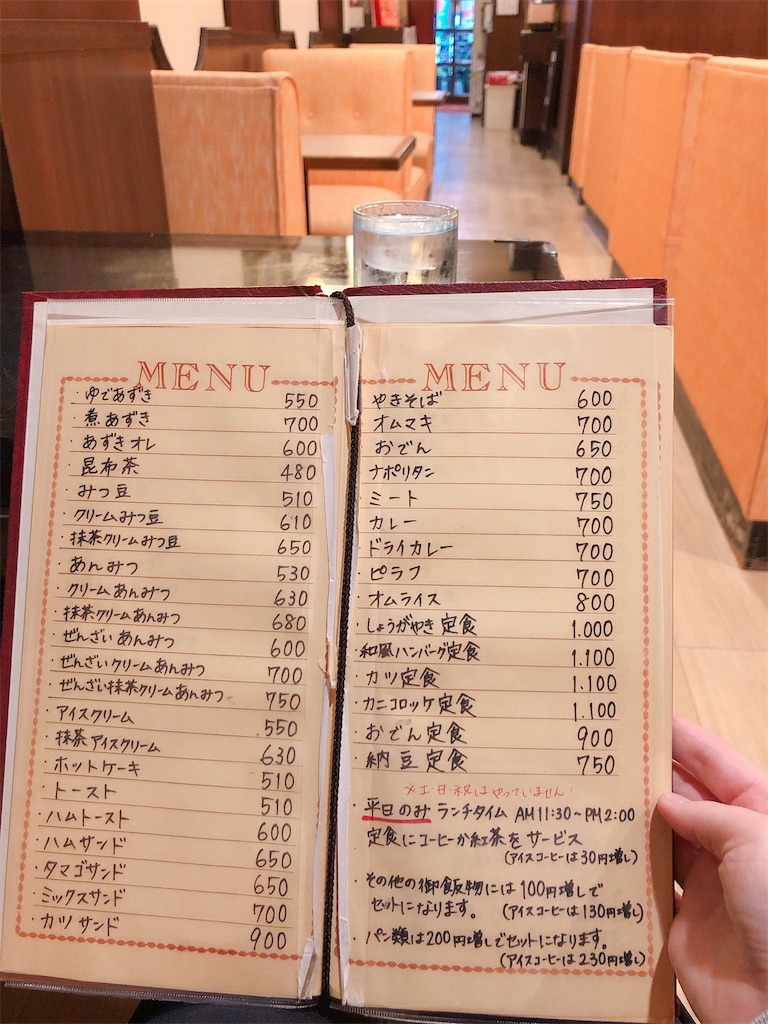 MENU
・ゆであずき 550
・煮あずき 700
・あずきオレ 600
・昆布茶 480
・みつ豆 510
・クリームみつ豆 610
・抹茶クリームみつ豆 650
・あんみつ 530
・クリームあんみつ 630
・抹茶クリームあんみつ 680
・ぜんざいあんみつ 600
・ぜんざいクリームあんみつ 700
・ぜんざい抹茶クリームあんみつ 750
・アイスクリーム 550
・抹茶アイスクリーム 630
・ホットケーキ 510
・トースト 510
・ハムトースト 600
・ハムサンド 650
・タマゴサンド 650
・ミックスサンド 700
・カツサンド 900
MENU
やきそば 600
・オムマキ 700
おでん 650
・ナポリタン 700
・ミート 750
・カレー 700
・ドライカレー 700
・ピラフ 700
・オムライス 800
・しょうがやき定食 1.000
・和風ハンバーグ定食 1.100
・カツ定食 1.100
・カニコロッケ定食 1.100
・おでん定食 900
・納豆定食 750
※土・日・祝はやっていません!
・平日のみ ランチタイム AM11:30~PM2:00
定食にコーヒーか紅茶をサービス
(アイスコーヒーは30円増し)
・その他の御飯物には100円増しで
セットになります。 (アイスコーヒーは130円増し)
・パン類は200円増しでセットになります。
(アイスコーヒーは230円増し)